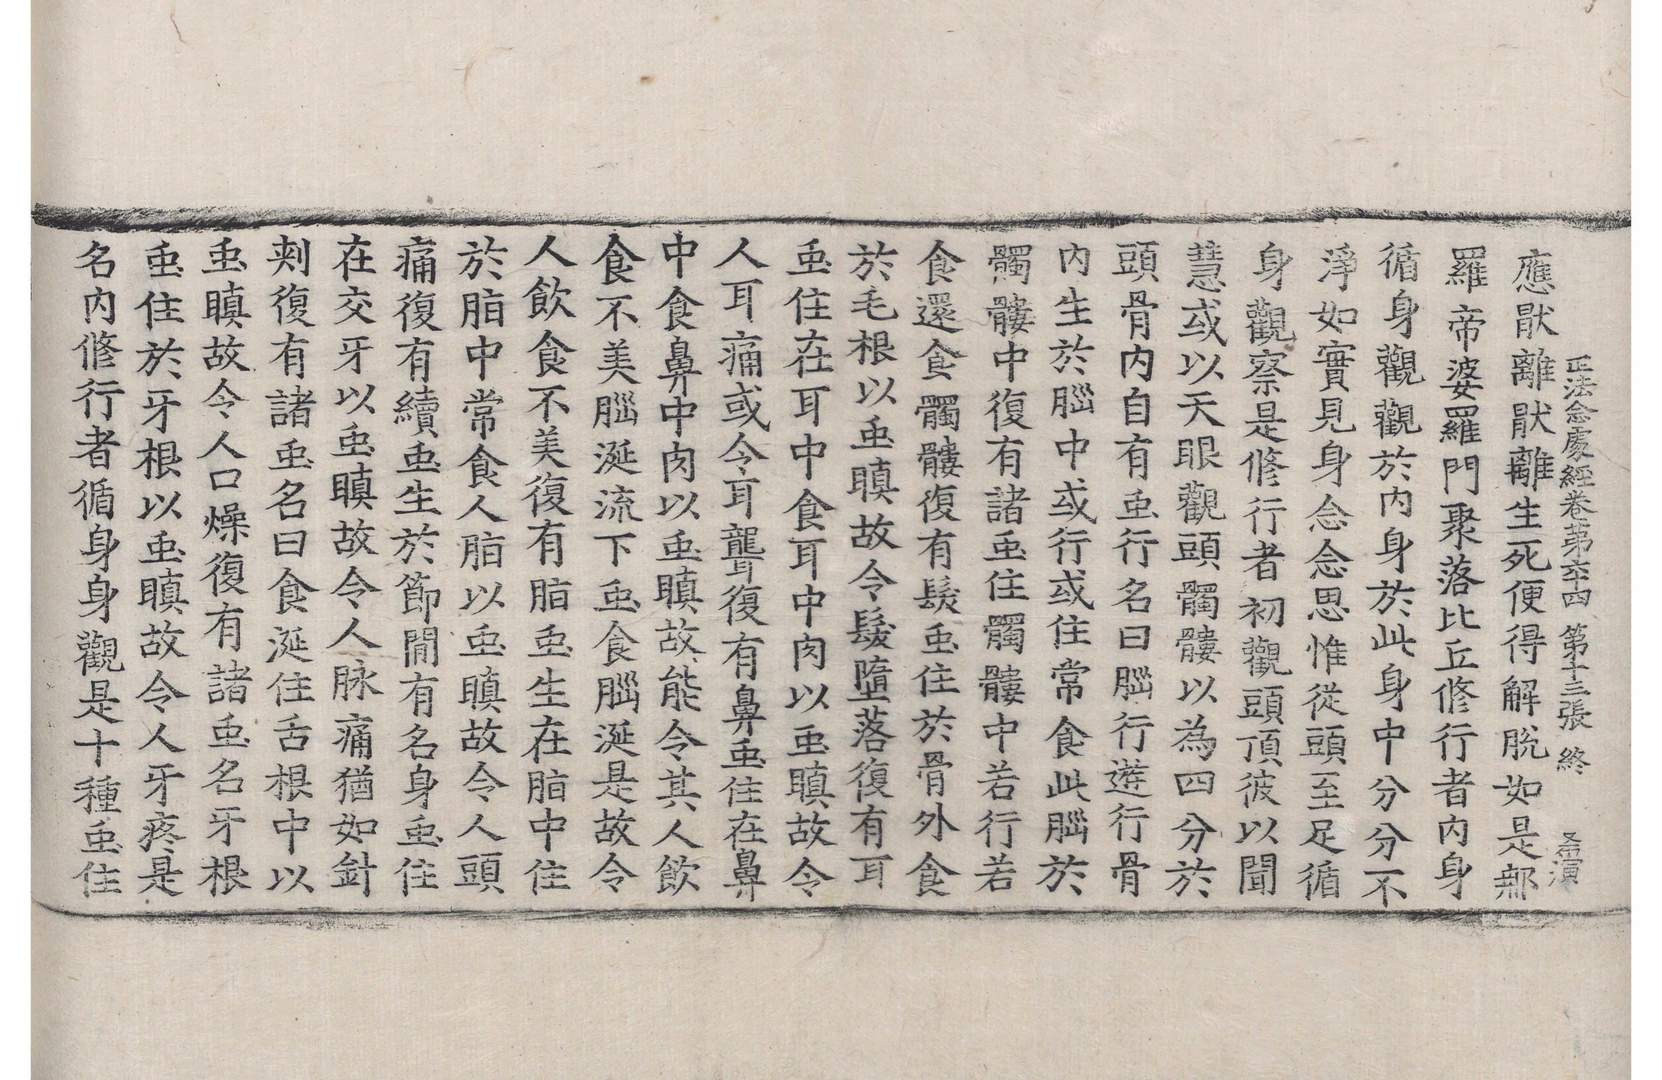 正法念處經卷第六十四 第十三張 終
應猒離猒離生死便得解脫如是郍
羅帝婆羅門聚落比丘修行者內身
循身觀觀於內身於此身中分分不
淨如實見身念念思惟從頭至足循
身觀察是修行者初觀頭頂彼以聞
慧或以天眼觀頭髑髏以為四分於
頭骨內自有虫行名曰腦行遊行骨
內生於腦中或行或住常食此腦於
髑髏中復有諸虫住髑髏中若行若
食還食髑髏復有髮虫住於骨外食
於毛根以虫瞋故令髮墮落復有耳
虫住在耳中食耳中肉以虫瞋故令
人耳痛或令耳聾復有鼻虫住在鼻
中食鼻中肉以虫瞋故能令其人飲
食不美腦涎流下虫食腦涎是故令
人飲食不美復有脂虫生在脂中住
於脂中常食人脂以虫瞋故令人頭
痛復有續虫生於節間有名身虫住
在交牙以虫瞋故令人脉痛猶如針
刾復有諸虫名曰食涎住舌根中以
虫瞋故令人口燥復有諸虫名牙根
虫住於牙根以虫瞋故令人牙疼是
名內修行者循身身觀是十種虫住